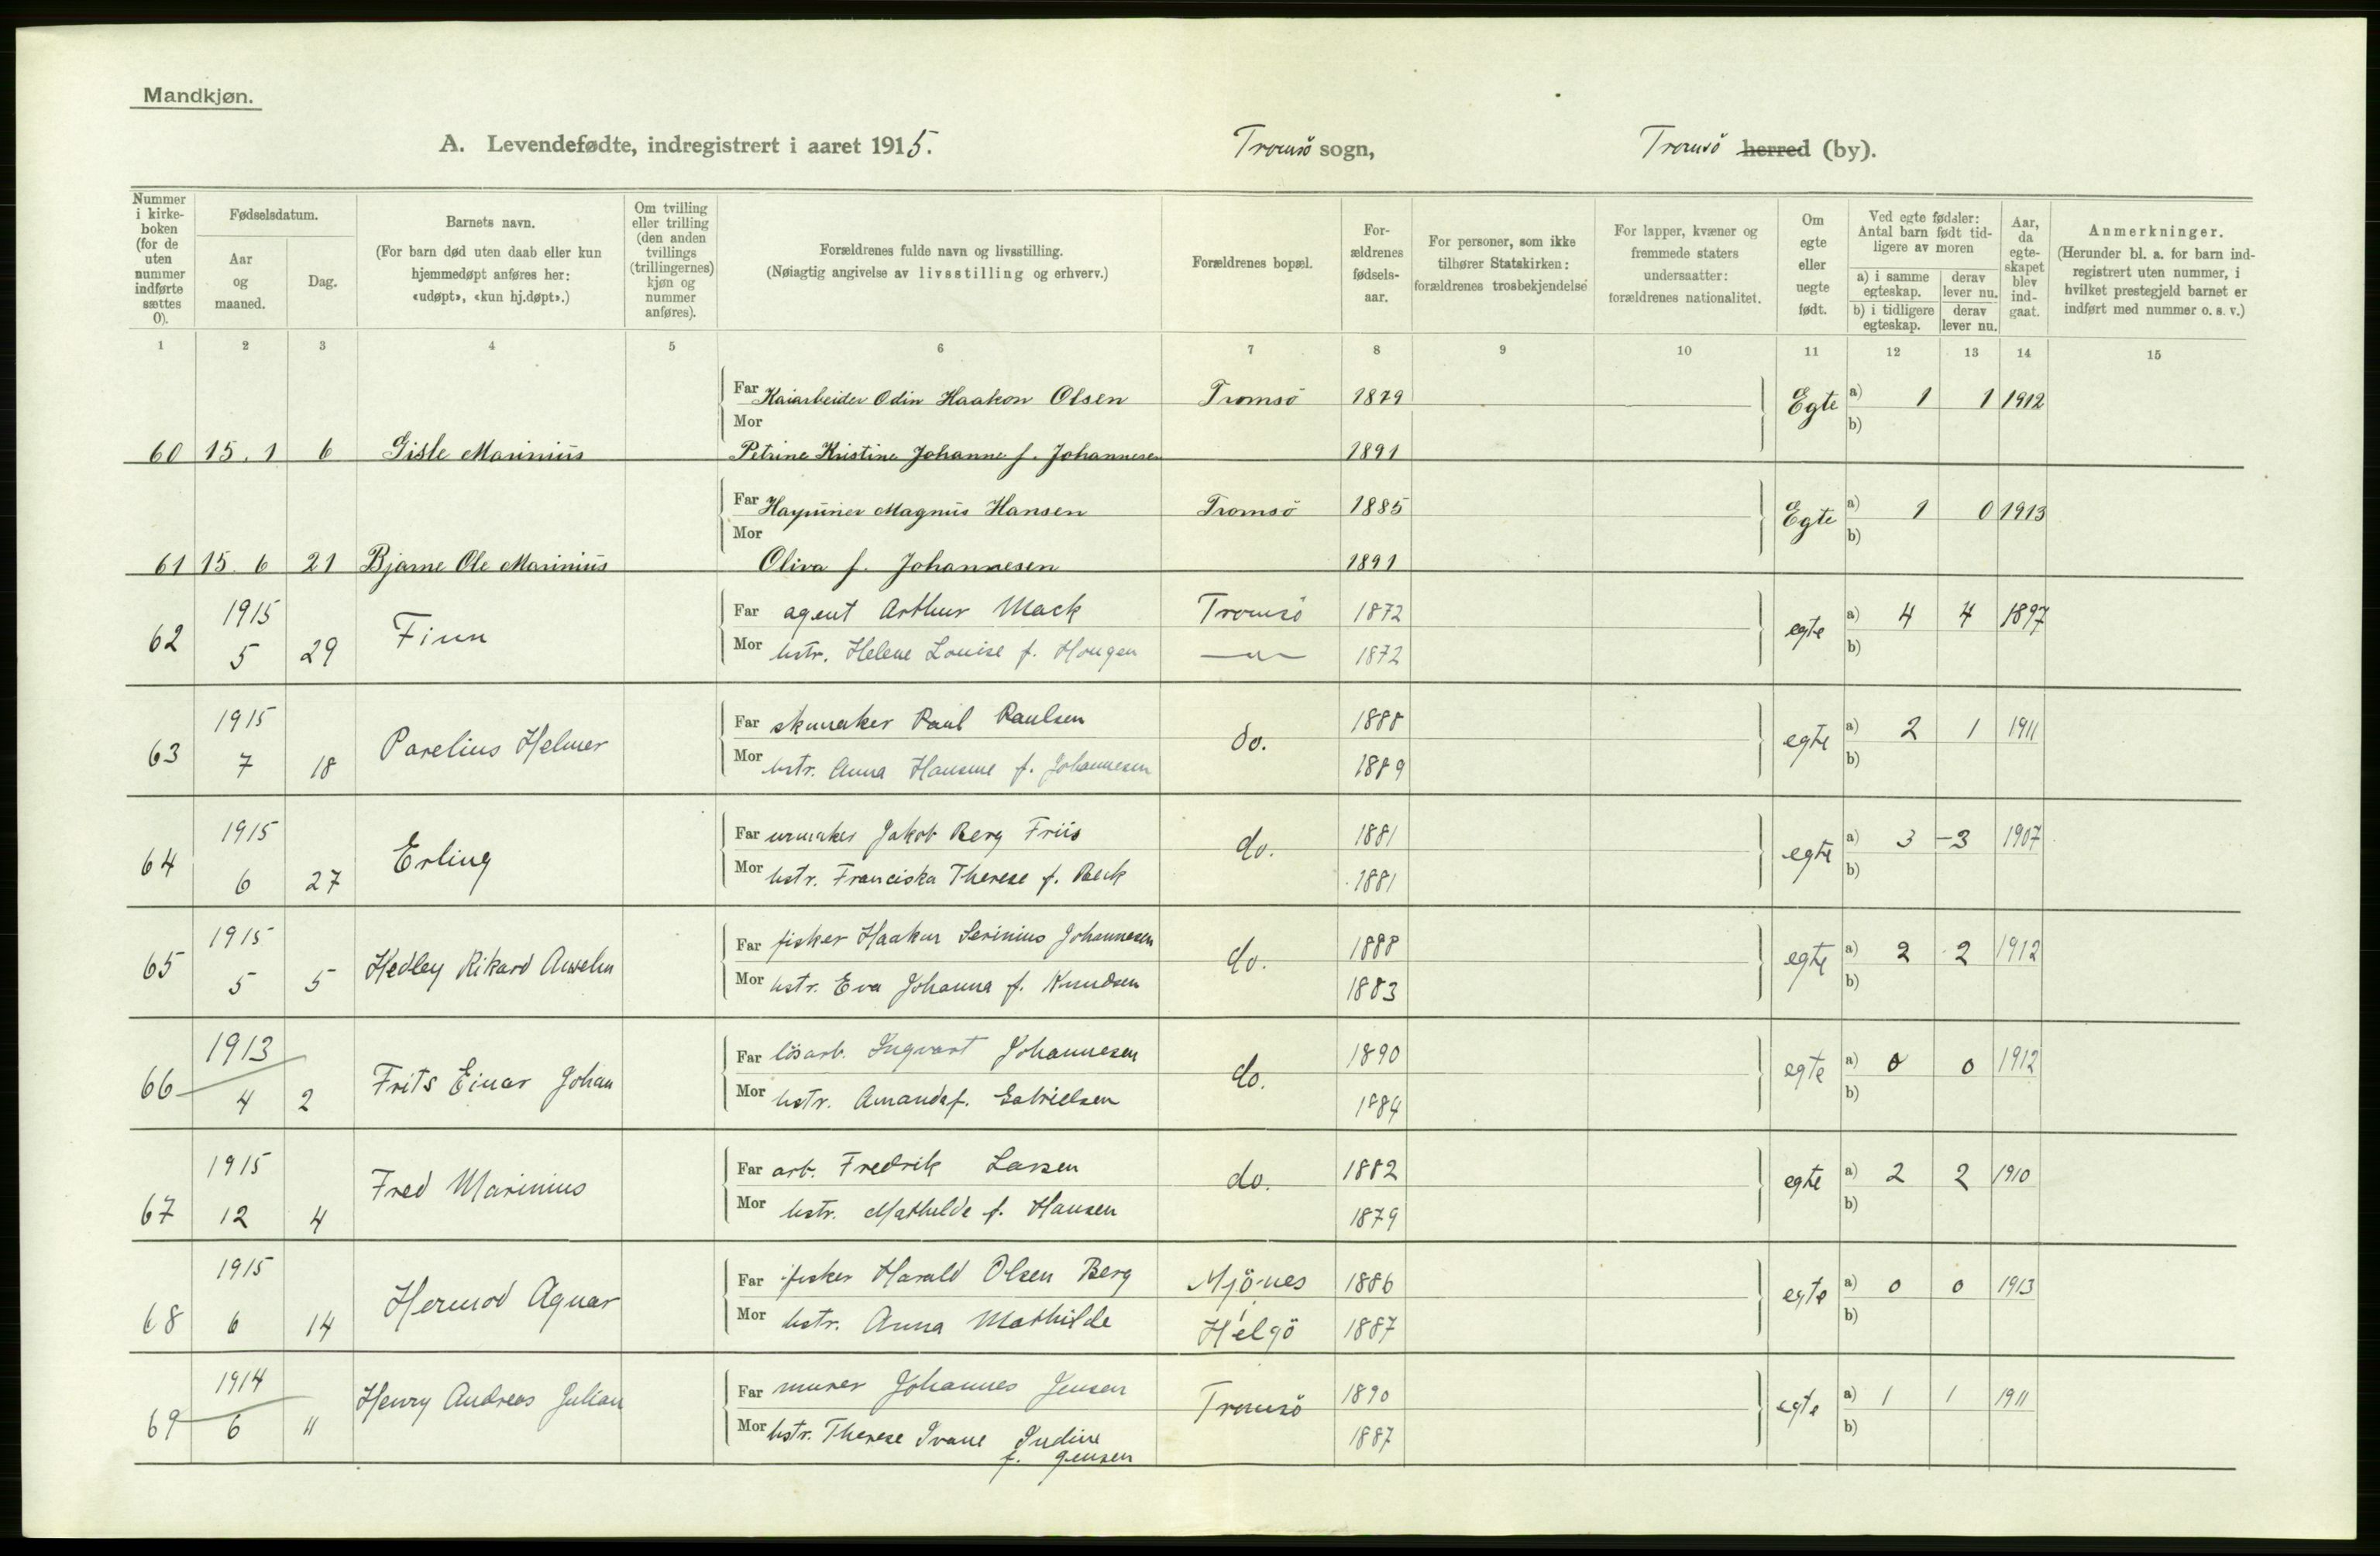 Mandkjøn.
A. Levendefødte, indregistrert i aaret 1915. Tromsö sogn, Tromsö herred (by).
Nummer i kirkeboken (for de uten nummer indførte sættes 0).
Fødselsdatum.
Aar og maaned.
Dag.
Barnets navn.
(For barn død uten daab eller kun hjemmedøpt anføres her: «udøpt», «kun hj.døpt».)
Om tvilling eller trilling (den anden tvillings (trillingernes) kjøn og nummer anføres).
Forældrenes fulde navn og livsstilling.
(Nøiagtig angivelse av livsstilling og erhverv.)
Forældrenes bopæl.
Forældrenes fødselsaar.
For personer, som ikke tilhører Statskirken: forældrenes trosbekjendelse
For lapper, kvæner og fremmede staters undersaatter: forældrenes nationalitet.
Om egte eller uegte født.
Ved egte fødsler: Antal barn født tidligere av moren
a) i samme egteskap. derav lever nu.
b) i tidligere egteskap. derav lever nu.
Aar, da egteskapet blev indgaat.
Anmerkninger.
(Herunder bl. a. for barn indregistrert uten nummer, i hvilket prestegjeld barnet er indført med nummer o. s. v.)
1 2 3 4 5 6 7 8 9 10 11 12 13 14 15
Far Kaiarbeider Odin Haakon Olsen Tromsö 1879 Egte a) 1 1 1912
Mor b)
60 15. 1 6 Gisle Marinius Petrine Kristine Johanne f. Johannesen 1891
Far Magnus Hansen Tromsö 1885 Egte a) 1 0 1913
Mor b)
61 15. 6 21 Bjarne Ole Marinius Oliva f. Johannesen 1891
62 1915 Finn Far agent Arthur Mack Tromsö 1872 egte a) 4 4 1897
5 29 Mor hstr. Helene Louise f. Hougen —„— 1872 b)
63 1915 Parelius Helmer Far skomaker Paul Paulsen do. 1888 egte a) 2 1 1911
7 18 Mor hstr. Anna Hansine f. Johannesen 1889 b)
64 1915 Erling Far urmaker Jakob Berg Friis do. 1881 egte a) 3 -3 1907
6 27 Mor hstr. Franciska Therese f. Beck 1881 b)
65 1915 Hedley Rikard Anselm Far fisker Haakon Serinius Johannesen do. 1888 egte a) 2 2 1912
5 5 Mor hstr. Eva Johanna f. Knudsen 1883 b)
66 1913 Frits Einar Johan Far lösarb. Ingvart Johannesen do. 1890 egte a) 0 0 1912
4 2 Mor hstr. Amanda f. Gabrielsen 1884 b)
67 1915 Fred Marinius Far arb. Fredrik Larsen do. 1882 egte a) 2 2 1910
12 4 Mor hstr. Mathilde f. Hansen 1879 b)
68 1915 Hermod Agnar Far fisker Harald Olsen Berg Mjönes 1886 egte a) 0 0 1913
6 14 Mor hstr. Anna Mathilde Helgö 1887 b)
69 1914 Henry Andreas Julian Far murer Johannes Jensen Tromsö 1890 egte a) 1 1 1911
6 11 Mor hstr. Therese Ivane Indine 1887 b)
f. Jensen